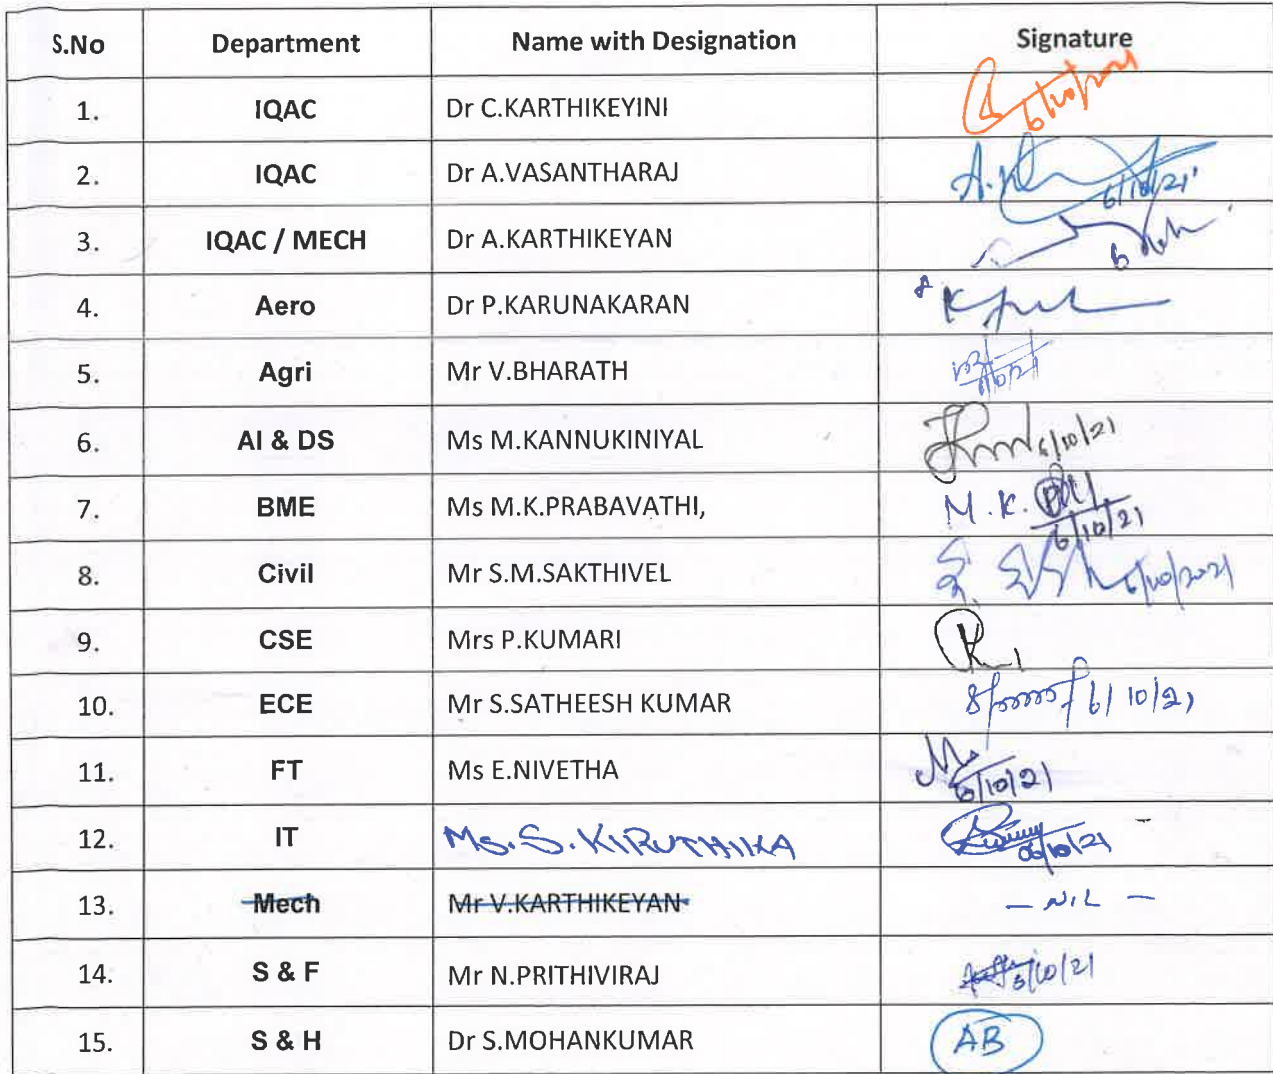 S.No Department Name with Designation Signature
1. IQAC Dr C.KARTHIKEYINI 6/10/2021
2. IQAC Dr A.VASANTHARAJ A. 6/10/21
3. IQAC / MECH Dr A.KARTHIKEYAN
4. Aero Dr P.KARUNAKARAN
5. Agri Mr V.BHARATH
6. AI & DS Ms M.KANNUKINIYAL 6/10/21
7. BME Ms M.K.PRABAVATHI, M.K. 6/10/21
8. Civil Mr S.M.SAKTHIVEL 6/10/2021
9. CSE Mrs P.KUMARI
10. ECE Mr S.SATHEESH KUMAR 6/10/21
11. FT Ms E.NIVETHA 6/10/21
12. IT Ms. S. KIRUTHIKA 06/10/21
13. Mech Mr V.KARTHIKEYAN - NIL -
14. S & F Mr N.PRITHIVIRAJ /10/21
15. S & H Dr S.MOHANKUMAR AB